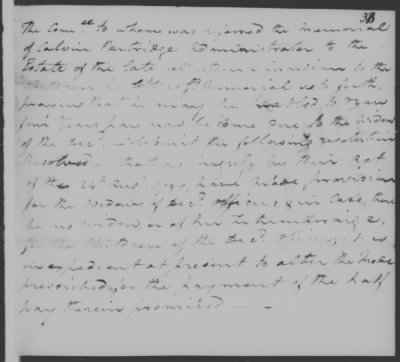 38
The Comee. to whom was referred the Memorial
of Calvin Partridge Administrator to the
Estate of the late & Guardian to the
Children he sets forth
praying that he may be enabled to
four years pay now become due to the widow
of the Decd. submit the following resolution
Resolved that as by their act
of the 24 Augt. 1780, have made provision
for the Widows of Decd. Officers, & in Case, there
be no widow, or of her intermarriage,
for the Children of the Decd. Officers, it is
inexpedient at present to alter the Mode
prescribed for the payment of the half
pay therein promised